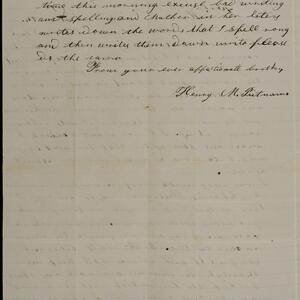 time this morning excuse bad writing
& spelling and Mother in her letters
writes down the words that I spell rong
and then wrote them down wuto please
do the same
From your ever affectionate brother
Henry M. Putnam